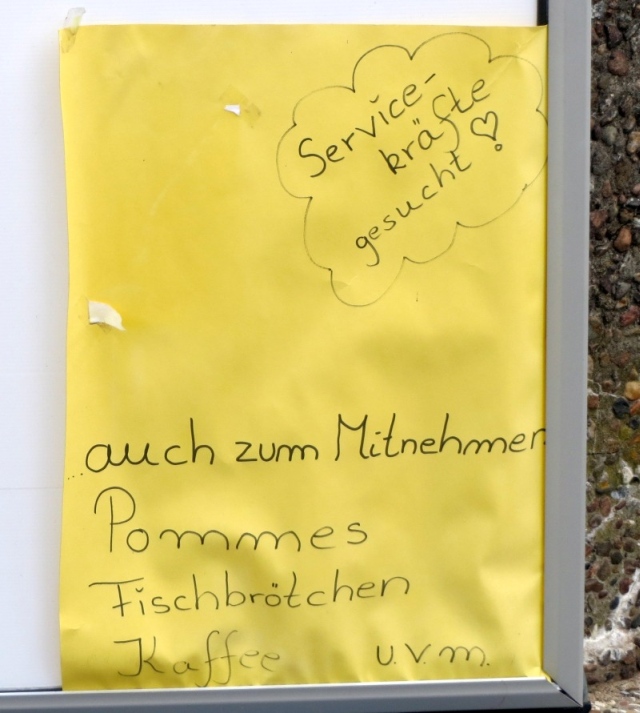 Service-
kräfte
gesucht!
...auch zum Mitnehmen
Pommes
Fischbrötchen
Kaffee u.v.m.